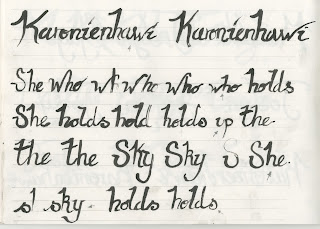 Karonienhawi Karonienhawi
She who wt who who who holds
She holds hold holds up the.
the the Sky Sky S She.
s' sky. holds holds